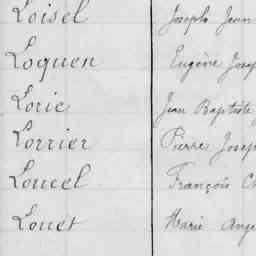 Loisel Joseph Jean
Loquen Eugène Josep
Lorie Jean Baptiste
Lorrier Pierre Joseph
Loucel François Ch
Louet Marie Ange